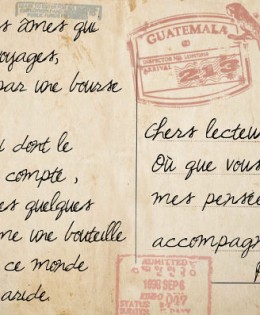 s âmes qui
oyages,
par une bourse
dont le
compte,
es quelques
ne une bouteille
ce monde
aride.
GUATEMALA
213
Chers lecteu
Où que vous
mes pensé
accompagn
ADMITTED
1998 SEP 6
STATUS